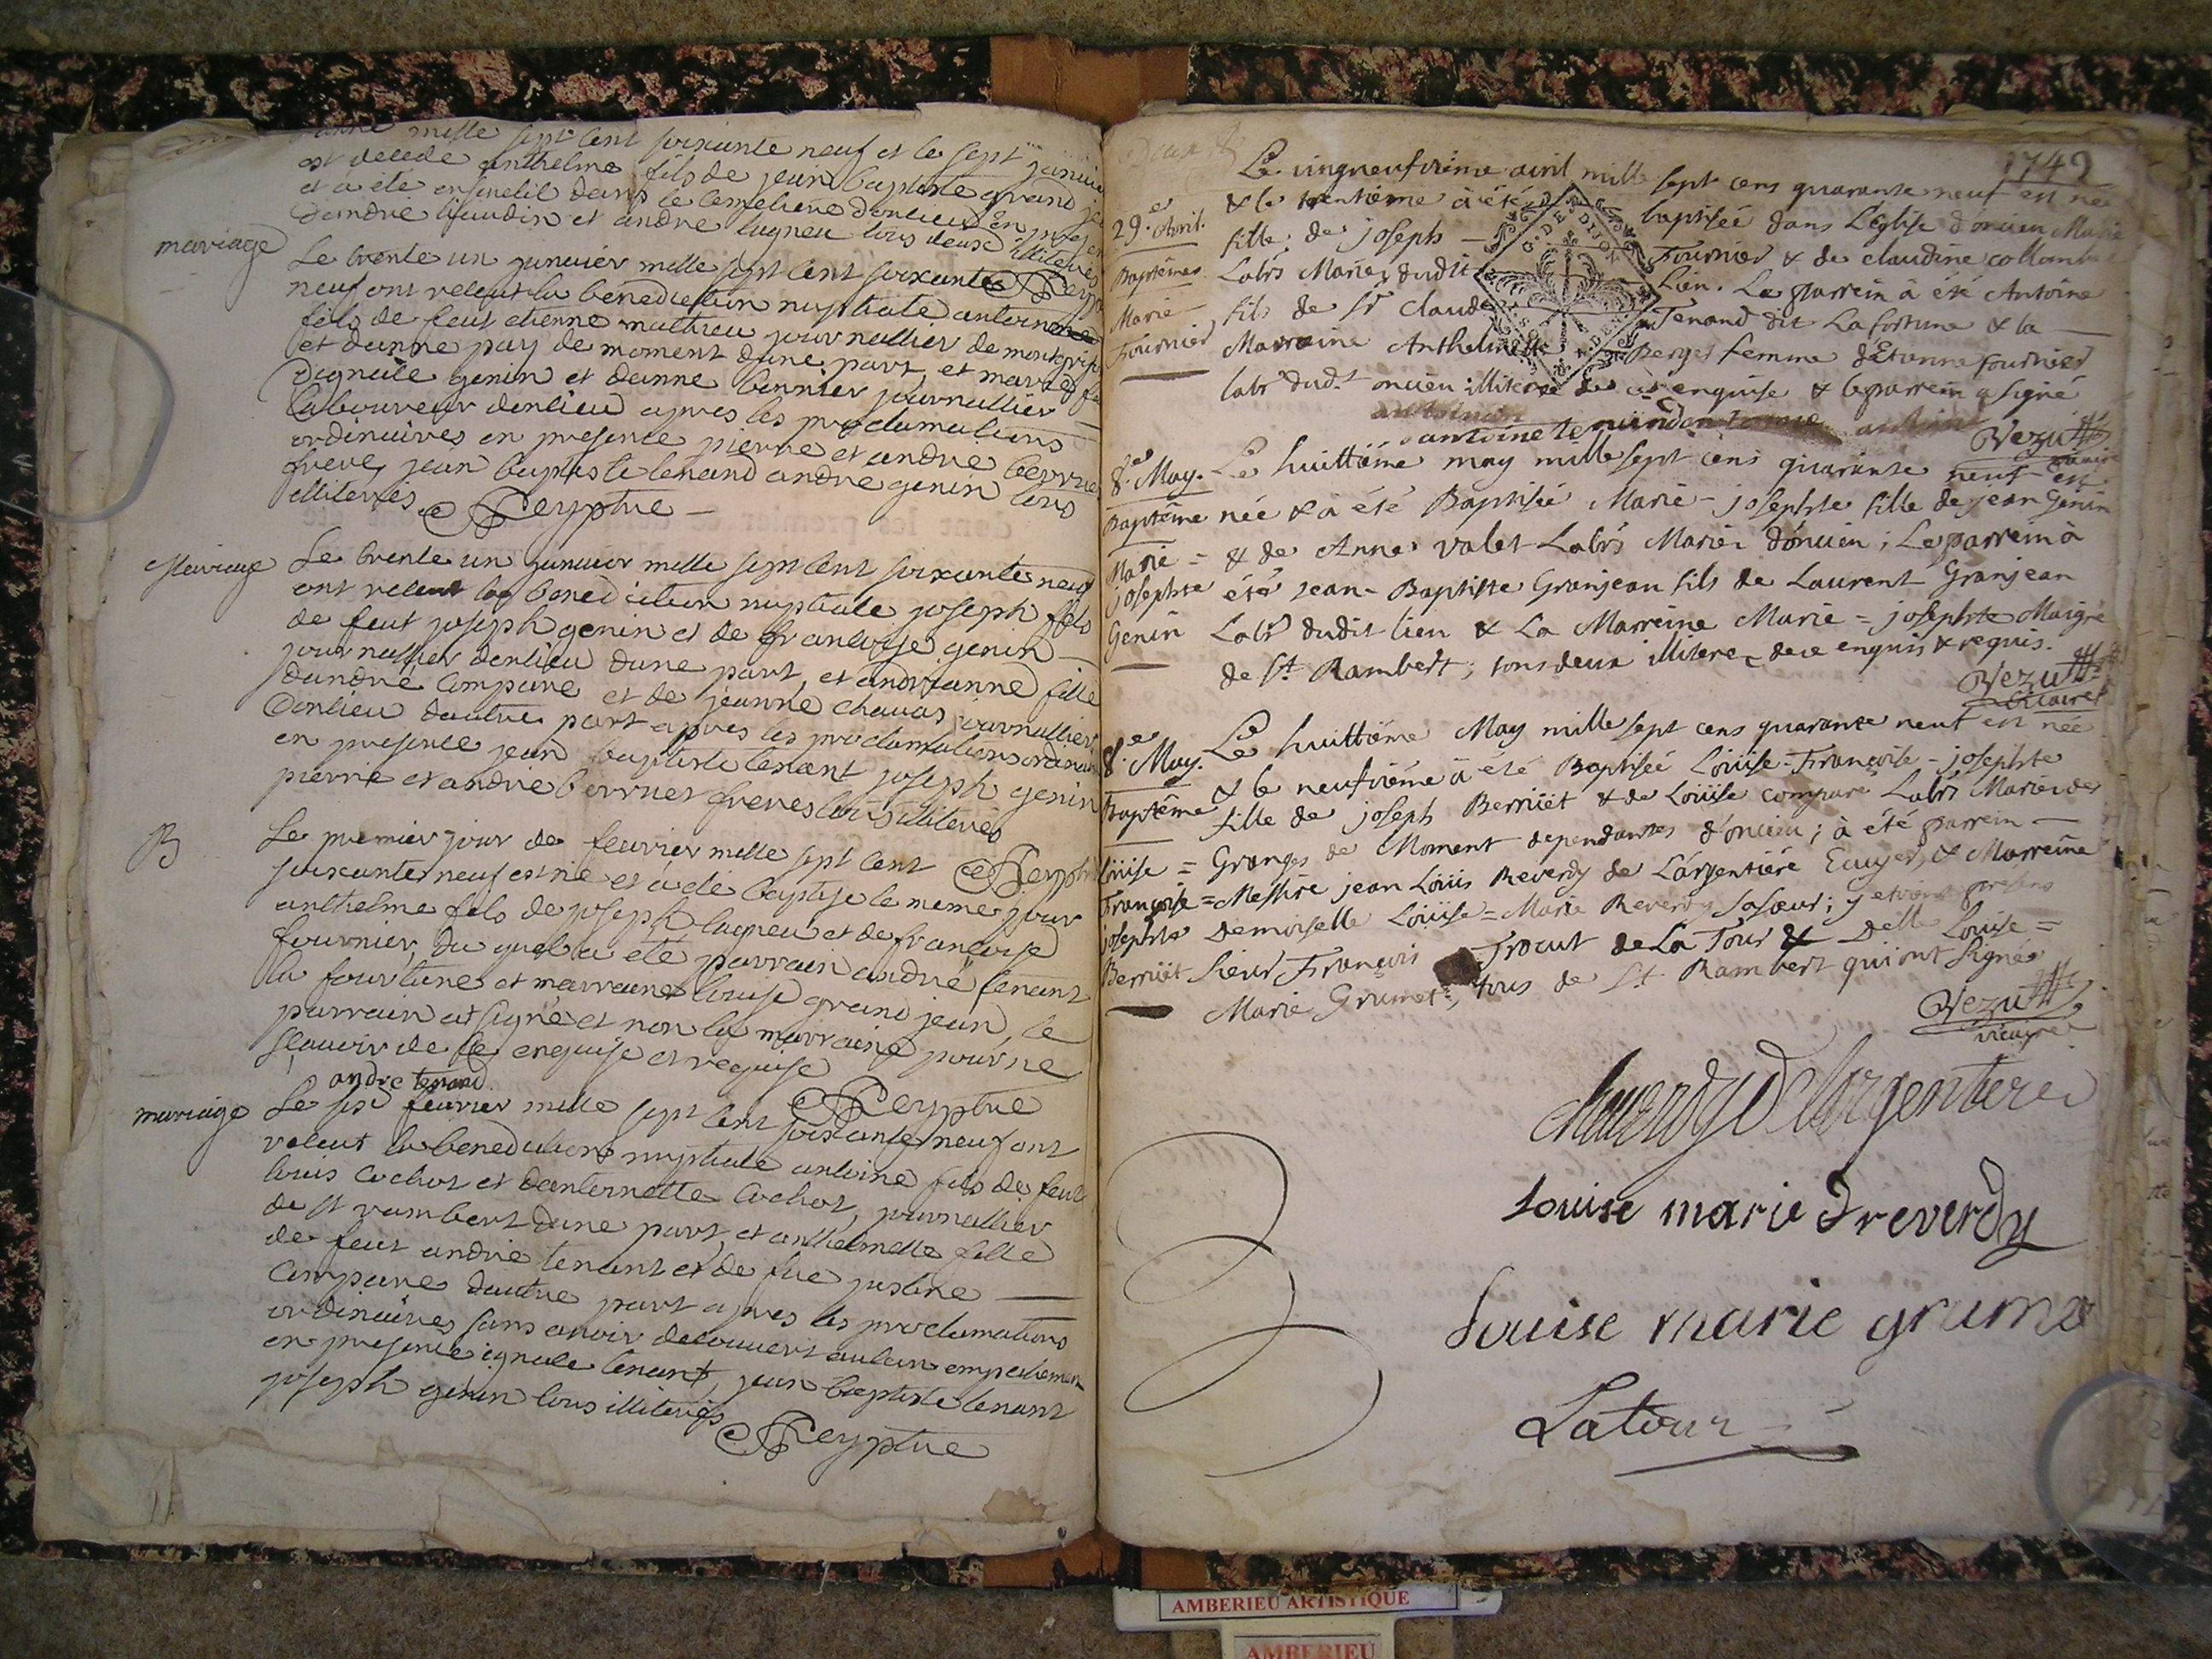 mille sept cent soixante neuf et le sept janvier
est decede anthelme fils de jean baptiste grand
et a eté enseuelit dans le cemetiere donlieu en presen
dandré et andre lugneu tous deux illiterés
mariage
Le trente un janvier mille sept cent soixante Reyp
neuf ont receut la benediction nuptiale antoine
fils de feut etienne mathieu journallier de
et danne pay de moment dune part, et marie fi
dignace genin et danne bernier journallier
laboureur donlieu apres les proclamations
ordinaires en presence pierre et andre berrue
freres, jean baptiste tenand andre genin tous
illiterés Reyptue
Mariage
Le trente un janvier mille sept cent soixante neuf
ont receut la benediction nuptiale joseph fils
de feut joseph genin et de francoise genin
journallier donlieu dune part, et andrianne fille
dandré compare et de jeanne chavas journallier
donlieu dautre part apres les proclamations ordinair
en presence jean baptiste tenant joseph genin
pierre et andre berruet freres tous illiterés
B
Le premier jour de fevrier mille sept cent Reyptue
soixante neuf est né et a eté baptisé le meme jour
anthelme fils de joseph lagneu et de françoise
fournier, du quel a eté parrain andré tenant
la fourtune et marraine louise grand jean, le
parrain at signé et non la marraine pour ne
scavoir de ce enquise et requise
andre tenand Reyptue
mariage
Le six fevrier mille sept cent soixante neuf ont
receut la benediction nuptiale antoine fils de feut
louis cochot et dantoinette cochot, journallier
de st rambert dune part, et anthelmette fille
de feut andré tenant et de fue justine
compare dautre part apres les proclamations
ordinaires sans avoir decouvert aulcun empechement
en presence ignace tenant, jean baptiste tenant
joseph genin tous illiterés
Reyptue
1749
29e. Avril.
Baptêmes
Marie
Fournier
Le vingneufvième avril mille sept cens quarante neuf est née
& le trentième à été baptisée dans L'église d'oncieu Marie
fille de joseph Fournier & de claudine collombe
Labrs Mariez dudit Lieu. Le parrein à été Antoine
fils de Sr Claude Tenand dit Lafortune & la
Marraine Anthelmette Berger femme d'Etienne fournier
labr dudt oncieu illiterée de ce enquise & le parrein a signé
antoine tenand
Vezu
vicaire
8e. May.
Baptême
Marie =
josephte
Genin
Le huittième may mille sept cens quarante neuf est
née & à été Baptisée Marie-josephte fille de jean Genin
& de Anne valet Labrs Mariez d'oncieu; Le parrein à
été jean-Baptiste Granjean fils de Laurent Granjean
Labr dudit lieu & La Marreine Marie=josephte Maigre
de St Rambert; tous deux illiterez de ce enquis & requis.
Vezu
vicaire
8e. May.
Baptême
Loüise =
Françoise =
josephte
Berrüet
Le huittième May mille sept cens quarante neuf est née
& le neufvième à été Baptisée Loüise=Françoise-josephte
fille de joseph Berrüet & de Loüise compare Labrs Mariez des
Granges de Moment dependantes d'oncieu; à été parrein
Messire jean Loüis Reverdy de L'argentière Ecuyer, & Marreine
Demoiselle Loüise=Marie Reverdy sa sœur; y etoient presens
Sieur François Trocut de La Tour & Delle Louise =
Marie Grumet, tous de St Rambert qui ont signés
Vezu
vicaire
Louise marie Dreverdy
Louise marie grumet
Latour
AMBERIEU ARTISTIQUE
AMBERIEU